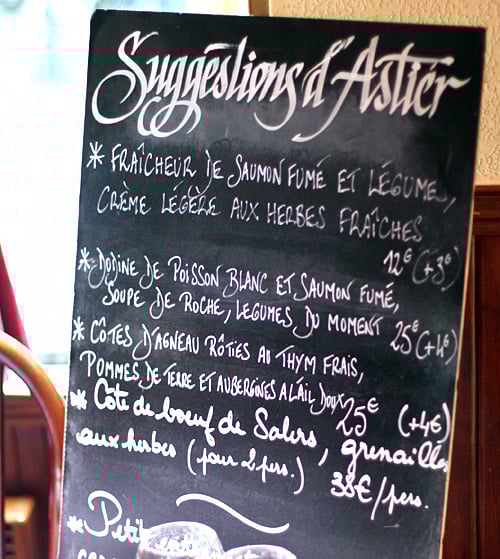 Suggestions d'Astier
* FRAÎCHEUR DE SAUMON FUMÉ ET LÉGUME,
CRÈME LÉGÈRE AUX HERBES FRAÎCHES
12€ (+3€)
* DODINE DE POISSON BLANC ET SAUMON FUMÉ,
SOUPE DE ROCHE, LEGUMES DU MOMENT 25€ (+4€)
* CÔTES D'AGNEAU RÔTIES AU THYM FRAIS,
POMMES DE TERRE ET AUBERGINES A L'AIL DOUX 25€ (+4€)
* Côte de boeuf de Salers, grenailles
aux herbes (pour 2 pers.) 38€/pers.
* Petit